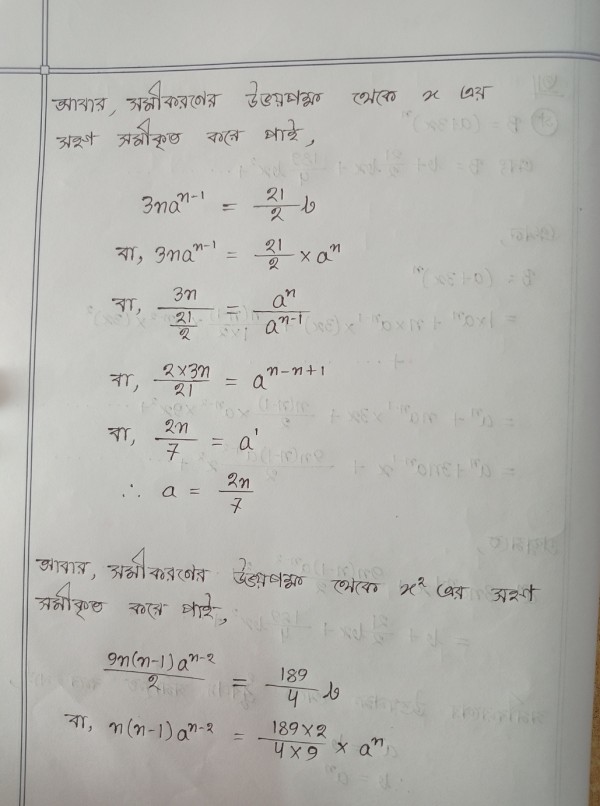 আবার, সমীকরণের উভয়পক্ষ থেকে x এর
সহগ সমীকৃত করে পাই,
3na^{n-1} = \frac{21}{2} b
বা, 3na^{n-1} = \frac{21}{2} × a^n
বা, \frac{3n}{\frac{21}{2}} = \frac{a^n}{a^{n-1}}
বা, \frac{2×3n}{21} = a^{n-n+1}
বা, \frac{2n}{7} = a^1
∴ a = \frac{2n}{7}
আবার, সমীকরণের উভয়পক্ষ থেকে x² এর সহগ
সমীকৃত করে পাই,
\frac{9n(n-1)a^{n-2}}{2} = \frac{189}{4} b
বা, n(n-1)a^{n-2} = \frac{189×2}{4×9} × a^n